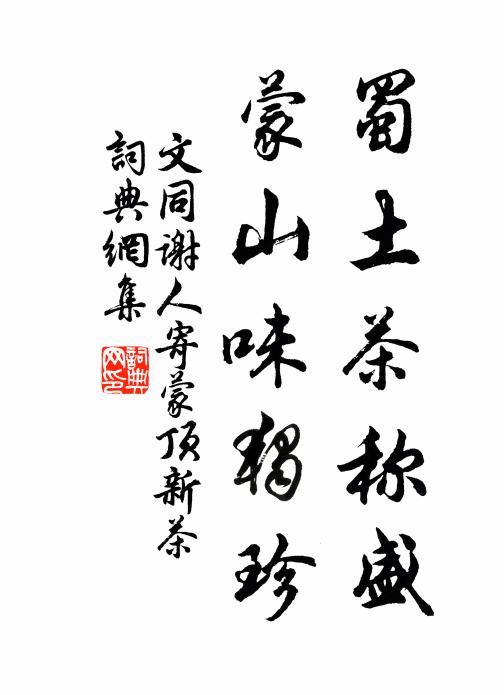 蜀土茶称盛
蒙山味獨珍
文同谢人寄蒙顶新茶
詞典網集
詞典网印